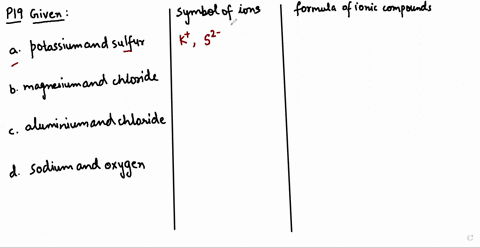 P19 Given:
symbol of ions
formula of ionic compounds
a. potassium and sulfur
K⁺, S²⁻
b. magnesium and chloride
c. aluminium and chloride
d. sodium and oxygen